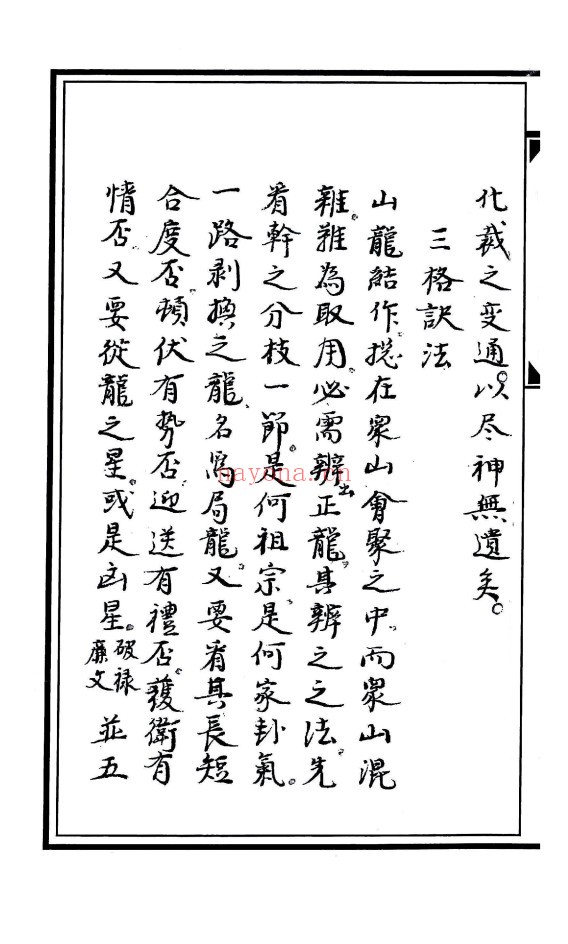 化裁之变通。以尽神無遺矣。
三格訣法
山龍結作。捴在衆山會聚之中。而衆山混
雜。雜為取用。必需辨出正龍。其辨之之法。先
看幹之分枝一節。是何祖宗。是何家卦氣。
一路剥換之龍。名為局龍。又要看其長短
合度否。頓伏有势否。迎送有禮否。護衛有
情否。又要從龍之星。或是凶星。破禄廉文並五
nayona.cn